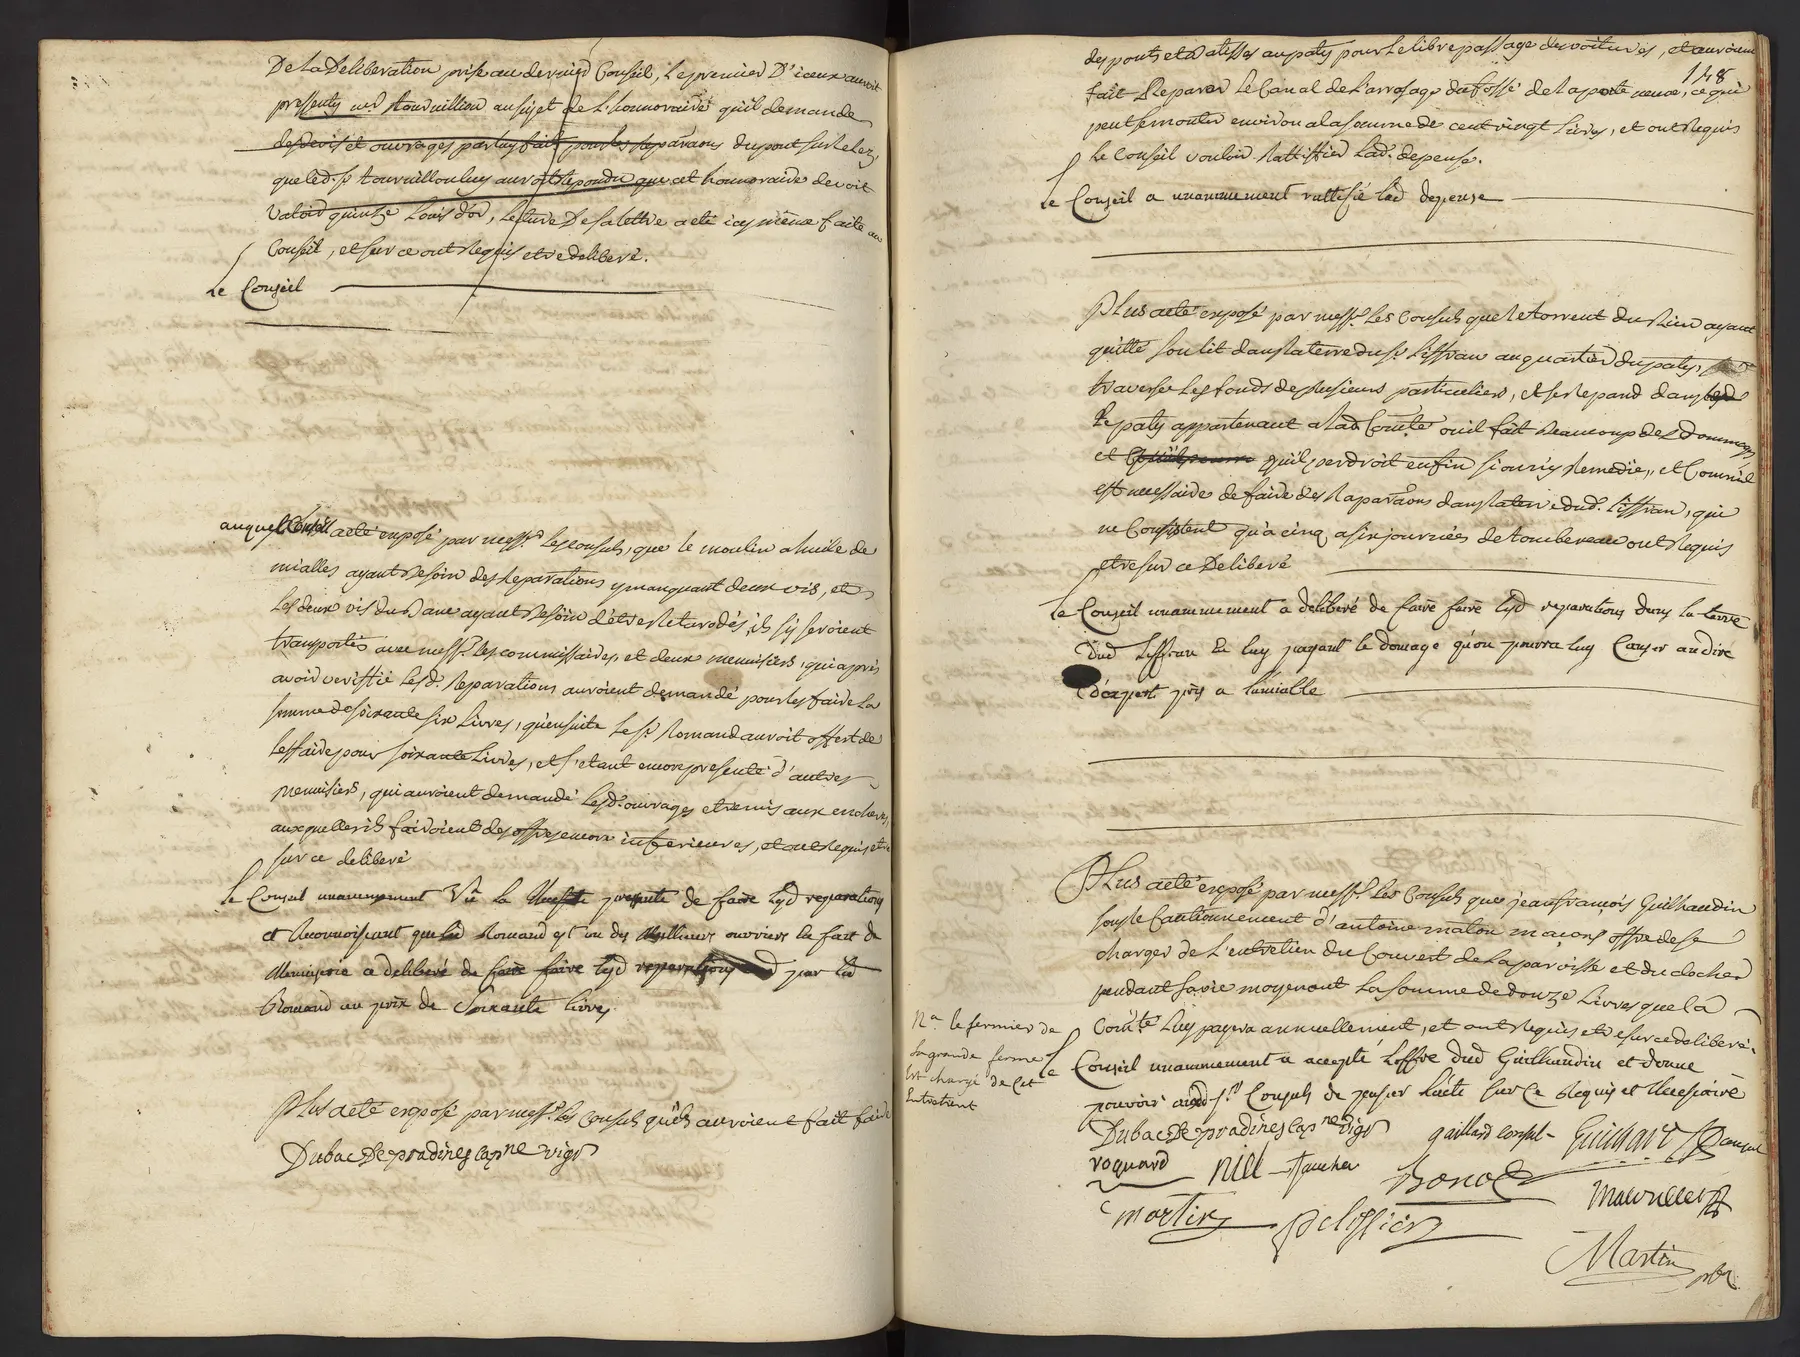 De La Deliberation prise au dernier Conseil, Le premier D'iceux auroit
pressenty med. tourvillion au sujet de L'honnoraire qu'il demande
des devis et ouvrages par luy faits pour les Reparaons du pont sur le lez,
que led. sr tourvillon luy auroit Repondu que cet honnoraire devoit
valoir quinze Louis d'or, lecture De sa lettre a eté icy même faite au
Conseil, et sur ce ont Requis etre deliberé.
Le Conseil
auquel Conseil a eté exposé par messrs les Consuls, que le moulin a huille de
mialles ayant Besoin des Reparations y manquant deux vis, et
Les deux vis du Banc ayant Besoin d'étre Retarodés, ils s'y seroient
transportés avec messrs les commissaires, et deux menuisiers, qui après
avoir veriffié Lesd. Reparations auroient demandé pour les faire La
somme de soixante six Livres, qu'ensuite Le sr Romand auroit offert de
Les faire pour soixante Livres, et s'etant encore presenté d'autres
menuisiers, qui auroient demandé Lesd. ouvrages etre mis aux encheres,
auxquelles ils fairoient des offres encore inferieures, et ont Requis etre
sur ce deliberé
Le Conseil unanimement Vû la Necessité pressente de faire lesd reparations
et Reconnoissant que led Romand est un des Meilleurs ouvriers la fait de
Menuiserie a deliberé de faire faire lesd reparations par led
Romand au prix de Soixante livres
Plus a eté exposé par messrs les Consuls qu'ils auroient fait faire
Dubac De pradines capne vigr
des ponts et Batisses au paty pour Le libre passage des voitures, et auroient
118
fait Reparer Le Canal de L'arrosage du fossé de la porte neuve, ce qui
peut se monter environ a la somme de cent vingt Livres, et ont Requis
Le Conseil vouloir Rattiffier Lad. depense.
Le Conseil a unanimement rattifié lad depense
Plus a eté exposé par messrs Les Consuls que le torrent du Rieu ayant
quitté son lit dans la terre du sr Liffran au quartier du paty,
traverse Les fonds de plusieurs particuliers, et se Repand dans
Le paty appartenant a lad Com̃té ou il fait Beaucoup de Dommages
et qu'il perdroit enfin si on n'y Remedie, et Comme il
est necessaire de faire des Reparaons dans la terre dud. Liffran, qui
ne Consistent qu'a cinq a six journées de tombereau ont Requis
etre sur ce Deliberé
Le Conseil unanimement a deliberé de faire faire lesd reparations dans la terre
dud Liffran En luy payant le domage qu'on pourra luy Causer au dire
d'expert pris a l'amiable
Plus a eté exposé par messrs Les Consuls que jean françois Guilhaudin
sous le Cautionnement d'antoine maton maçons offre de se
charger de L'entretien du Couvert de La paroisse et du clocher
pendant sa vie moyenant La somme de douze Livres que la
Com̃té Luy payera annuellement, et ont Requis etre sur ce deliberé.
Na le fermier de
la grande ferme
Est chargé de Cet
Entretient
Le Conseil unanimement a accepté L'offre dud Guilhaudin et donne
pouvoir auxd srs Consuls de passer l'acte sur Ce Requis et Necessaire
Dubac De pradines capne vigr gaillard consul
roquard
martin pelissier
Martin